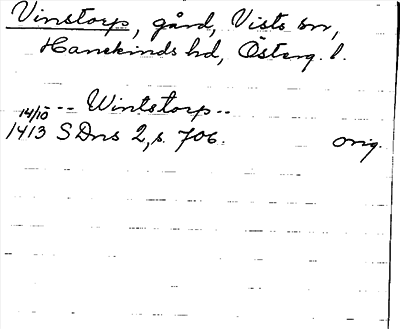 Vinstorp, gård, Vists sn,
Hanekinds hd, Österg. l.
-- Wintstorp --
14/10
1413 SDns 2, s. 706. orig.